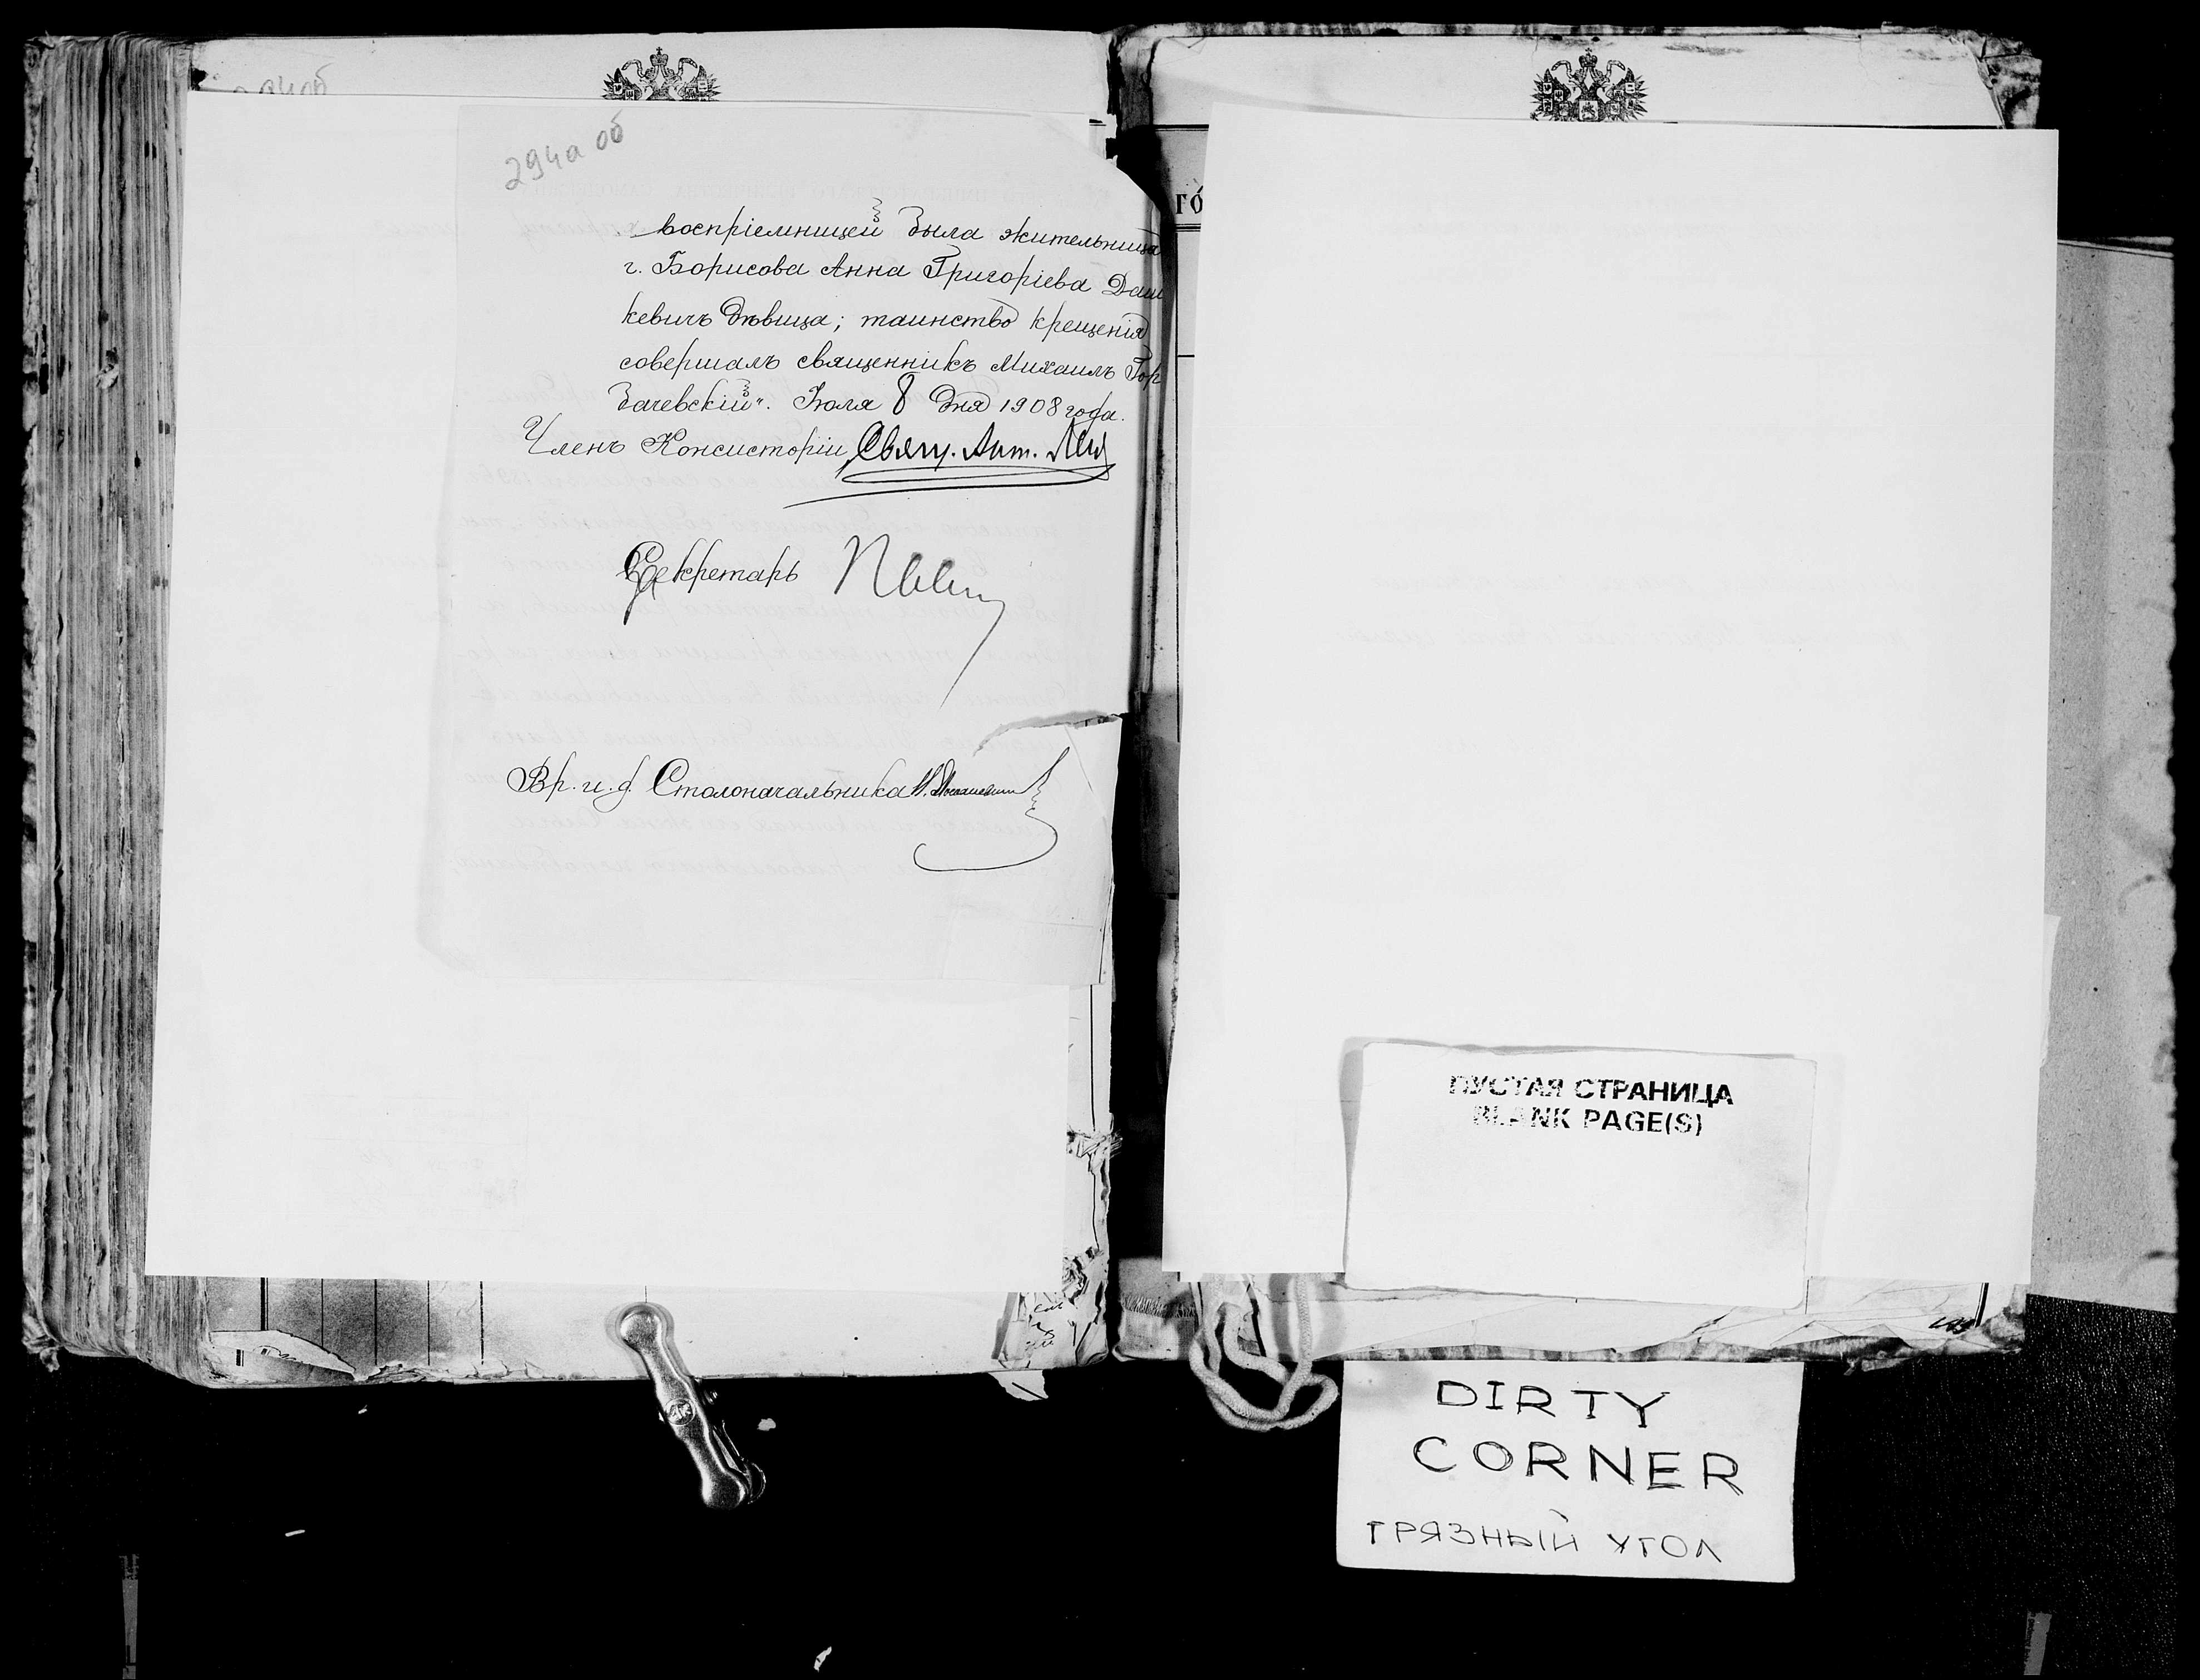 294а об
воспріемницей была жительница
г. Борисова Анна Григоріева Даш
кевичъ дѣвица; таинство крещенія
совершалъ священникъ Михаилъ Гор
бачевскій". Іюля 8 дня 1908 года.
Членъ Консисторіи, Свящ. Ант.
Секретарь
Вр. и. д. Столоначальника
ГО
ПУСТАЯ СТРАНИЦА
BLANK PAGE(S)
DIRTY
CORNER
ГРЯЗНЫЙ УГОЛ